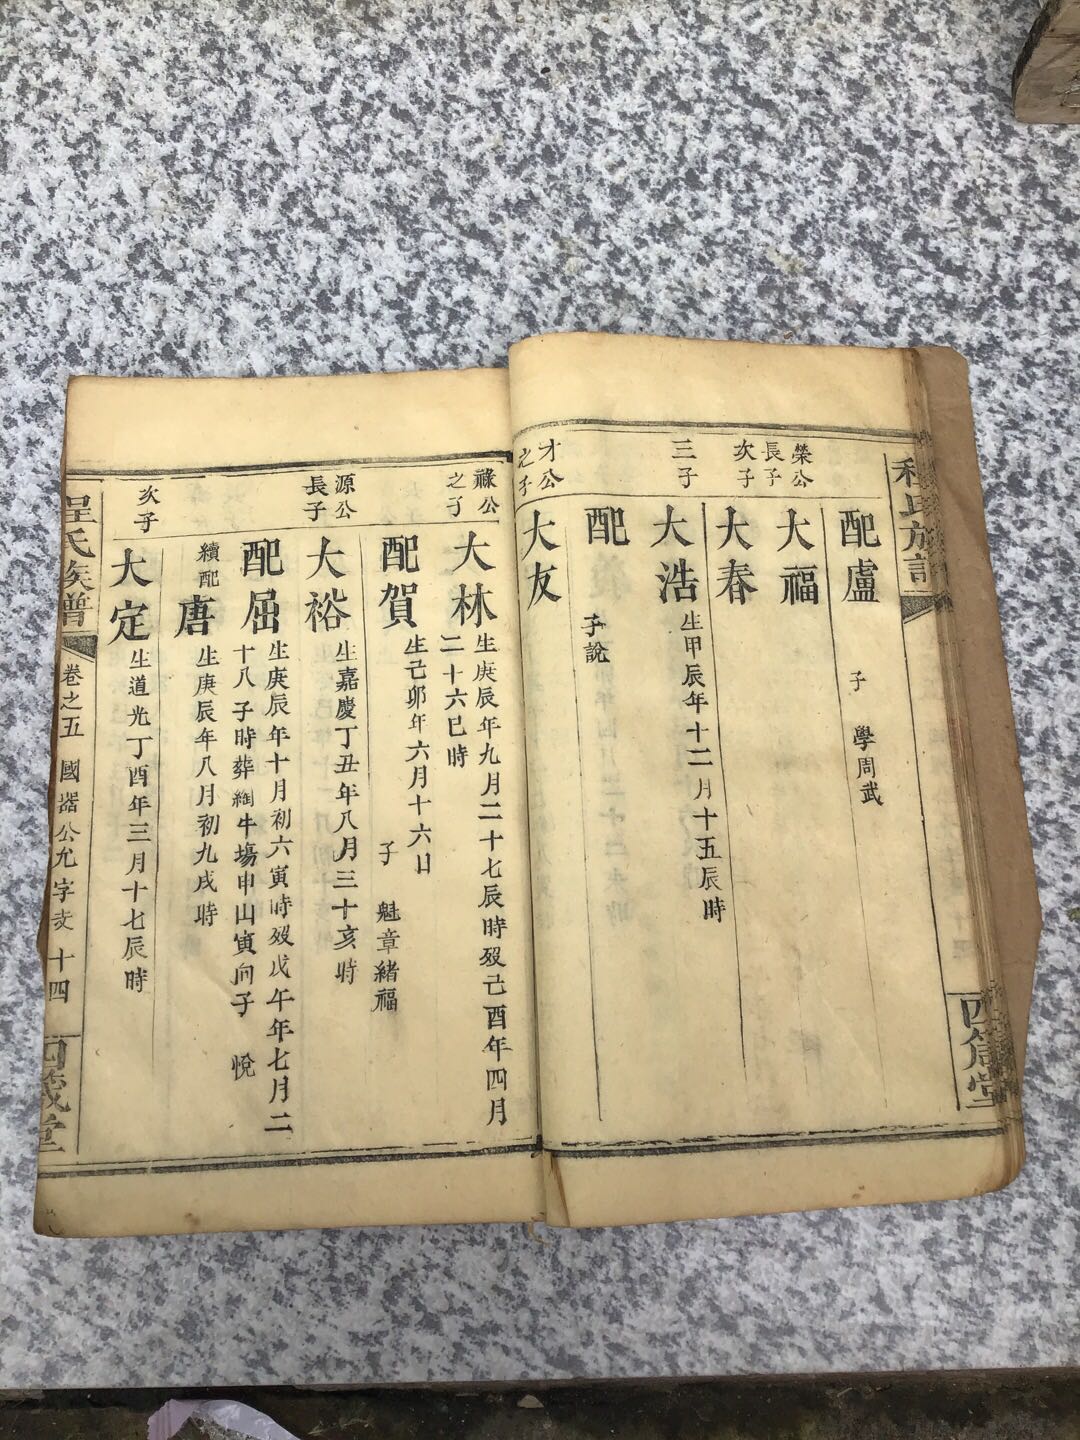 氏族譜
配盧
子 學周武
榮公
長子
大福
次子
大春
三子
大浩
生甲辰年十二月十五辰時
配
子說
才公
之子
大友
四箴堂
祿公
之子
大林
生庚辰年九月二十七辰時歿己酉年四月
二十六巳時
配賀
生己卯年六月十六日
子 魁章緒福
源公
長子
大裕
生嘉慶丁丑年八月三十亥時
配屈
生庚辰年十月初六寅時歿戊午年七月二
十八子時葬牛塲申山寅向子 悅
續配
唐
生庚辰年八月初九戌時
次子
大定
生道光丁酉年三月十七辰時
程氏族譜
卷之五 國器公允字支 十四
四箴堂